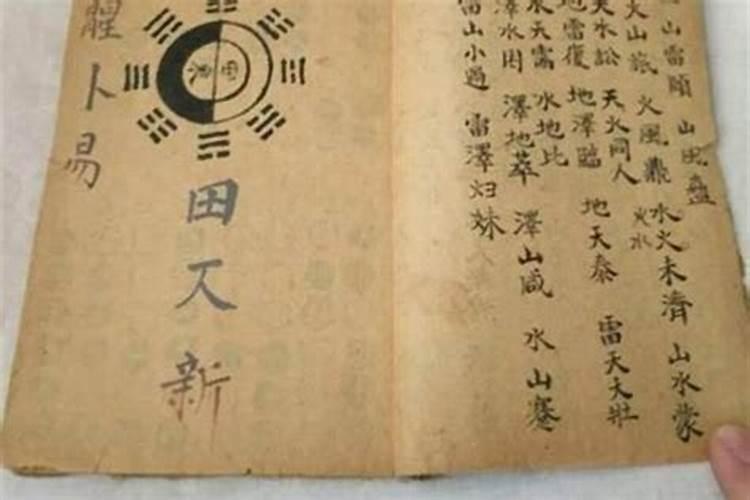 山雷頤
山風蠱
火山旅
火風鼎
水火未濟
火水
山水蒙
天水訟
天火同人
地雷復
地澤臨
地天泰
雷天大壯
水天需
水地比
澤水困
澤地萃
澤山咸
水山蹇
雷山小過
雷澤歸妹
卜易
田
新